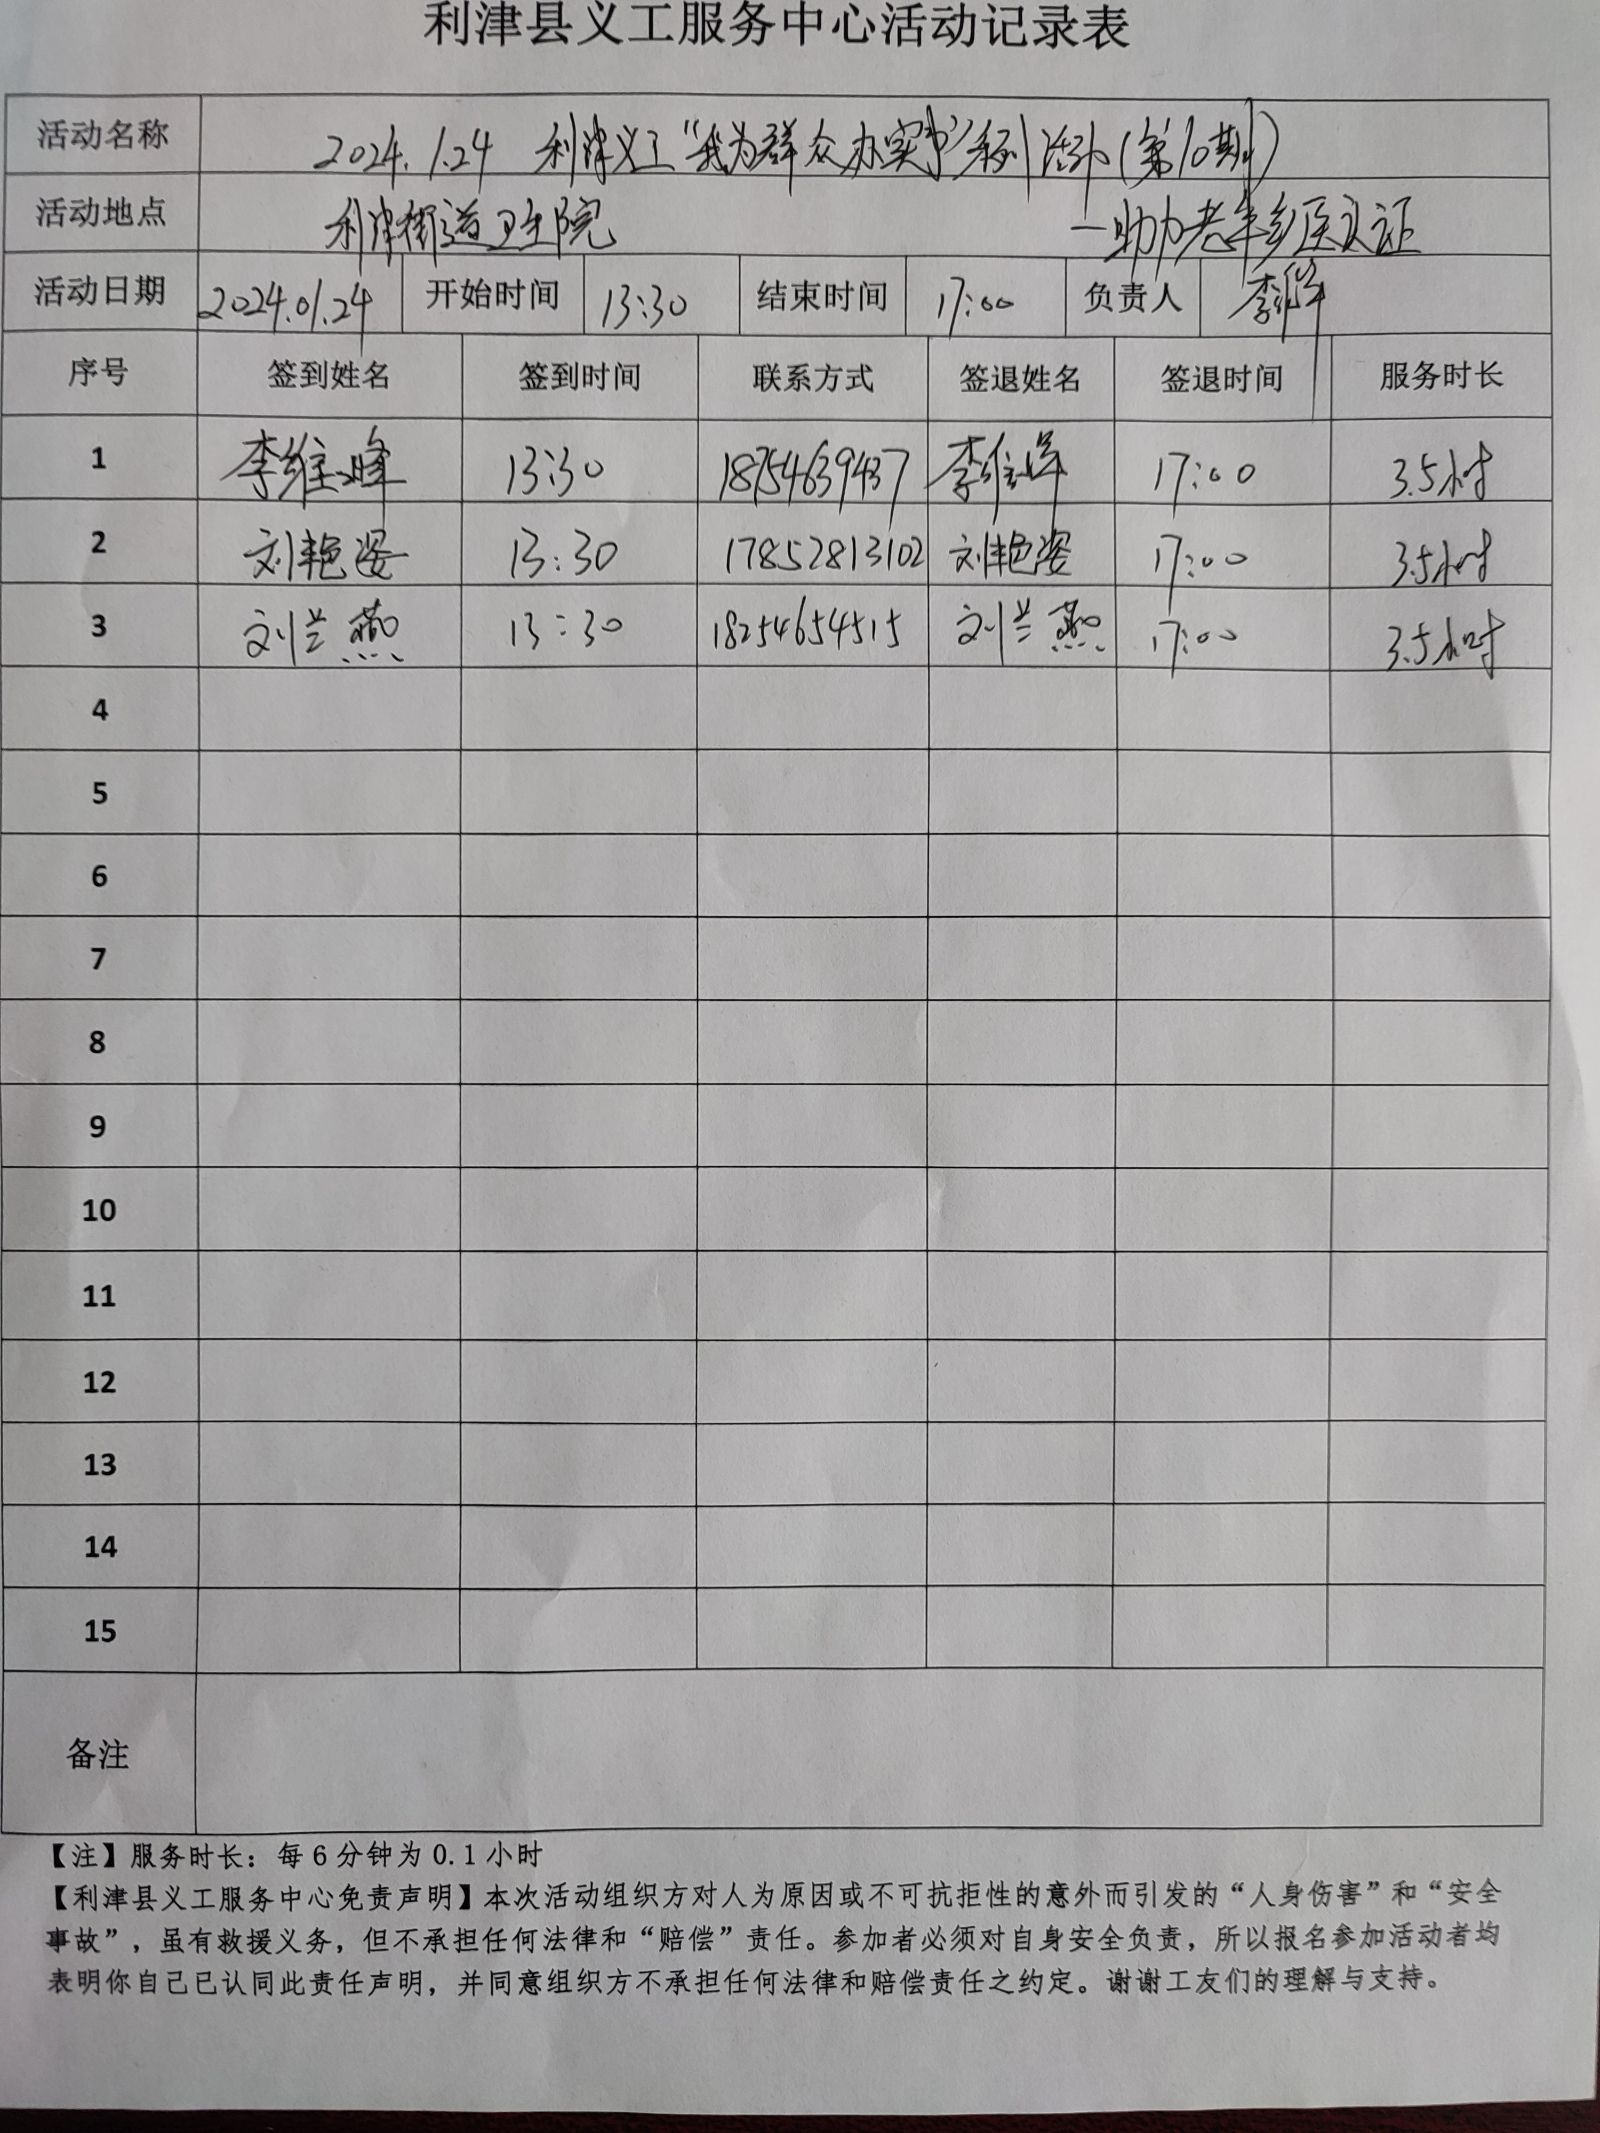 利津县义工服务中心活动记录表
活动名称 2024.1.24 利津义工“我为群众办实事”系列活动(第10期)
活动地点 利津街道卫生院 —助力老年乡医认证
活动日期 2024.01.24 开始时间 13:30 结束时间 17:00 负责人 李维峰
序号 签到姓名 签到时间 联系方式 签退姓名 签退时间 服务时长
1 李维峰 13:30 18754639437 李维峰 17:00 3.5小时
2 刘艳姿 13:30 17852813102 刘艳姿 17:00 3.5小时
3 刘兰燕 13:30 18254654515 刘兰燕 17:00 3.5小时
4
5
6
7
8
9
10
11
12
13
14
15
备注
【注】服务时长：每6分钟为0.1小时
【利津县义工服务中心免责声明】本次活动组织方对人为原因或不可抗拒性的意外而引发的“人身伤害”和“安全
事故”，虽有救援义务，但不承担任何法律和“赔偿”责任。参加者必须对自身安全负责，所以报名参加活动者均
表明你自己已认同此责任声明，并同意组织方不承担任何法律和赔偿责任之约定。谢谢工友们的理解与支持。